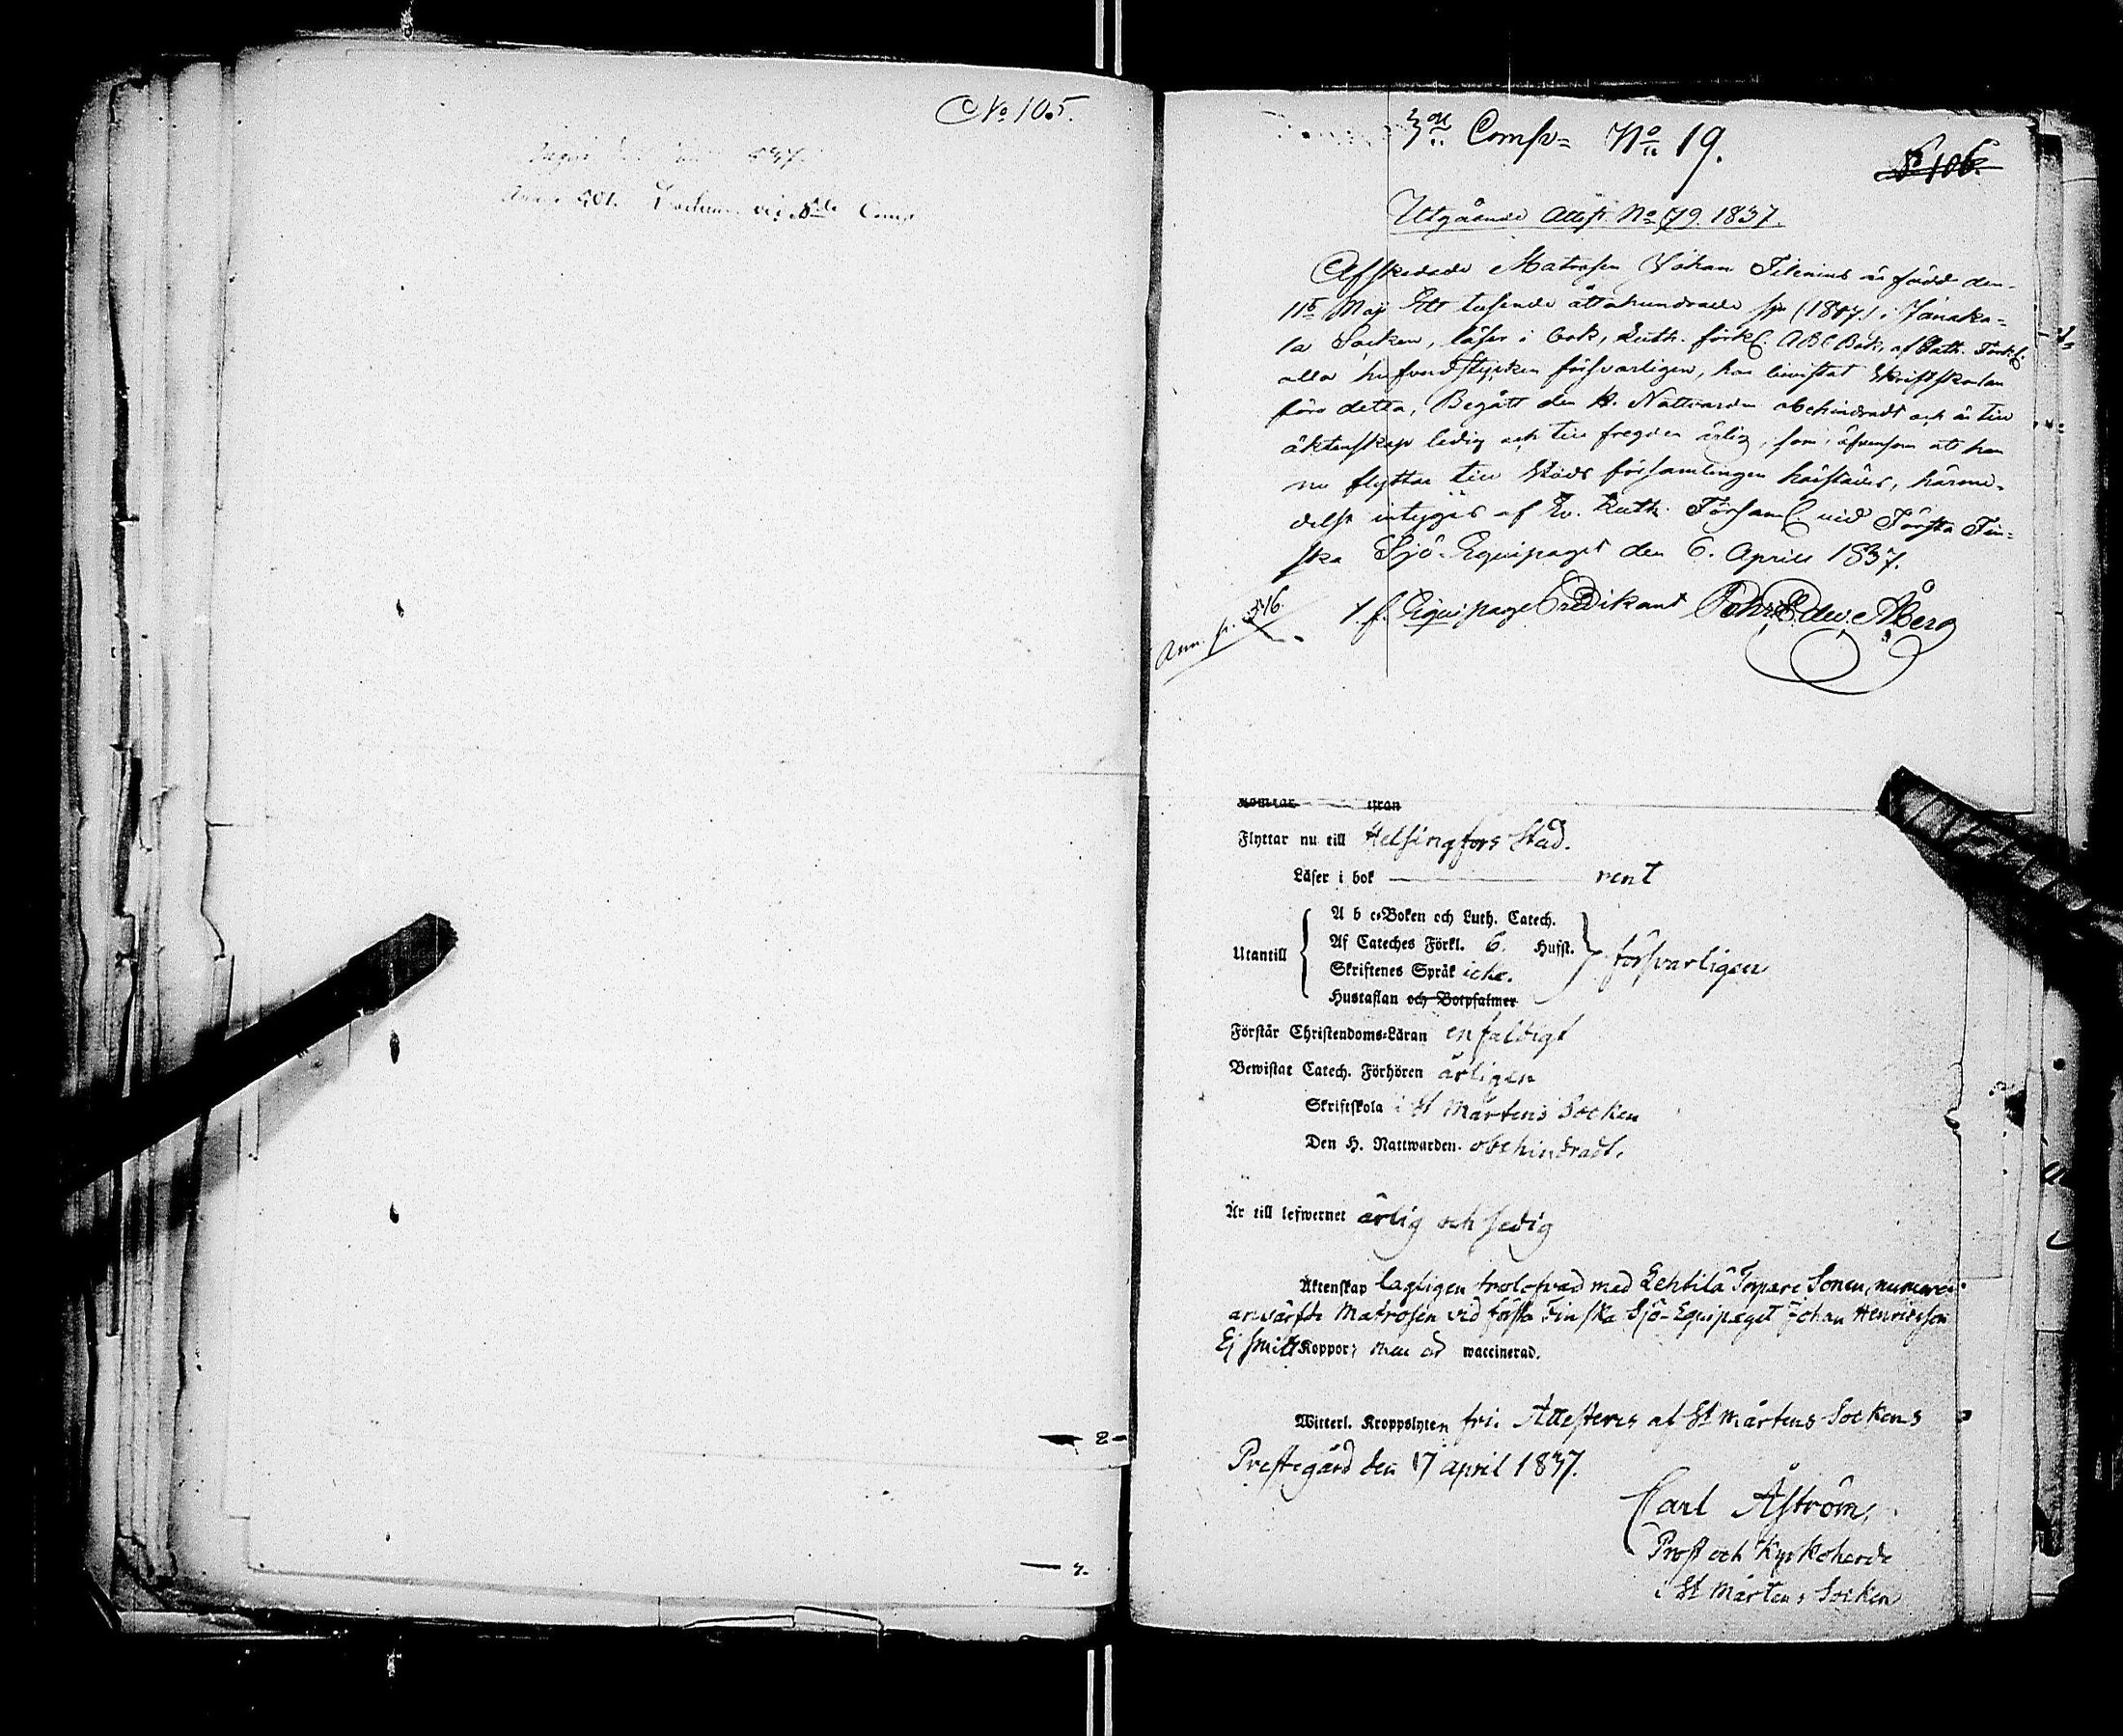 No 105.
401. vid 8de Comp
3dje Comp= No 19.
No 106.
Utgående Attest No 79. 1837.
Afskedade Matrosen Johan Filenius är född den
11te Maji Ett tusende åttahundrade sju (1807) i Janaka=
la Socken, läser i bok, Luth. förkl. ABC Bok, af Cath. Förkl.
alla hufvudstycken försvarligen, har bevistat Skriftskolan
före detta, Begått den H. Nattvarden obehindradt och är till
äktenskap ledig och till fregden ärlig, som, äfvensom att han
nu flyttar till Stads församlingen härstädes, härme-
delst intygas af Ev. Luth. Församl vid Första Fin=
ska Sjö-Equipaget den 6. Aprill 1837.
Ann. p. 376.
t. f. Equipage Predikant Edw. Åberg
Flyttar nu till Helsingfors Stad.
Läser i bok rent
Utantill
A b c-Boken och Luth. Catech.
Af Cateches Förkl. 6. Hufst.
Skriftenes Språk icke.
Hustaflan och Botpsalmer
försvarligen
Förstår Christendoms-Läran enfaldigt
Bewistat Catech. Förhören årligen
Skriftskola i St Mårtens Socken
Den H. Nattwarden. obehindradt.
Är till lefwernet ärlig och sedig
Äktenskap lagligen trolofvad med Lehtilä Torpare Sonen, numera
anvärfde Matrosen vid första Finska Sjö-Equipaget Johan Henricsson
Ej smitt Koppor; men är waccinerad.
Witterl. Kroppslyten fri. Attesteres af St Mårtens Sockens
Prestegård den 17 april 1837.
Carl Åström,
Prost och Kyrkoherde
i St Mårtens Socken